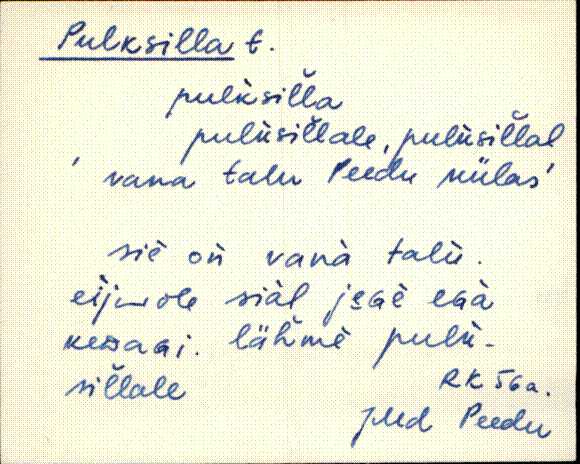 Pulksilla t.
pulksiľľa
puliisiľľale, puliisiľľal
'vana talu Peedu külas'
sìè òǹ vanà talù.
eìj‿ole siàl jɐɢè eɢà
keᴅaɢi. lähmè pulù-
siľľale
RK 56 a.
Jld Peedu